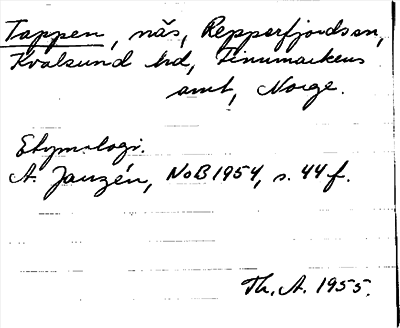 Tappen, näs, Repperfjordsn,
Kvalsund hd, Finnmarkens
amt, Norge.
Etymologi.
A. Janzén, NoB 1954, s. 44 f.
Th. A. 1955.